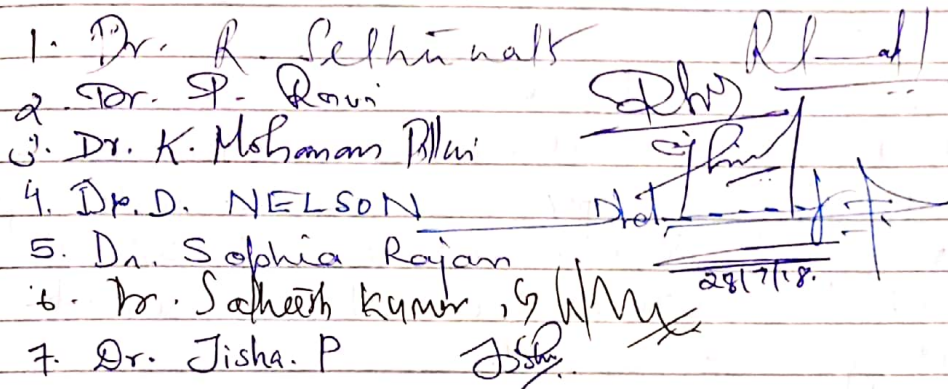 1. Dr. R. Sethunath
2. Dr. P. Ravi
3. Dr. K. Mohanan Pillai
4. Dr. D. NELSON
5. Dr. Sophia Rajan
28/7/18.
6. Dr. Satheesh Kumar, G
7. Dr. Jisha. P